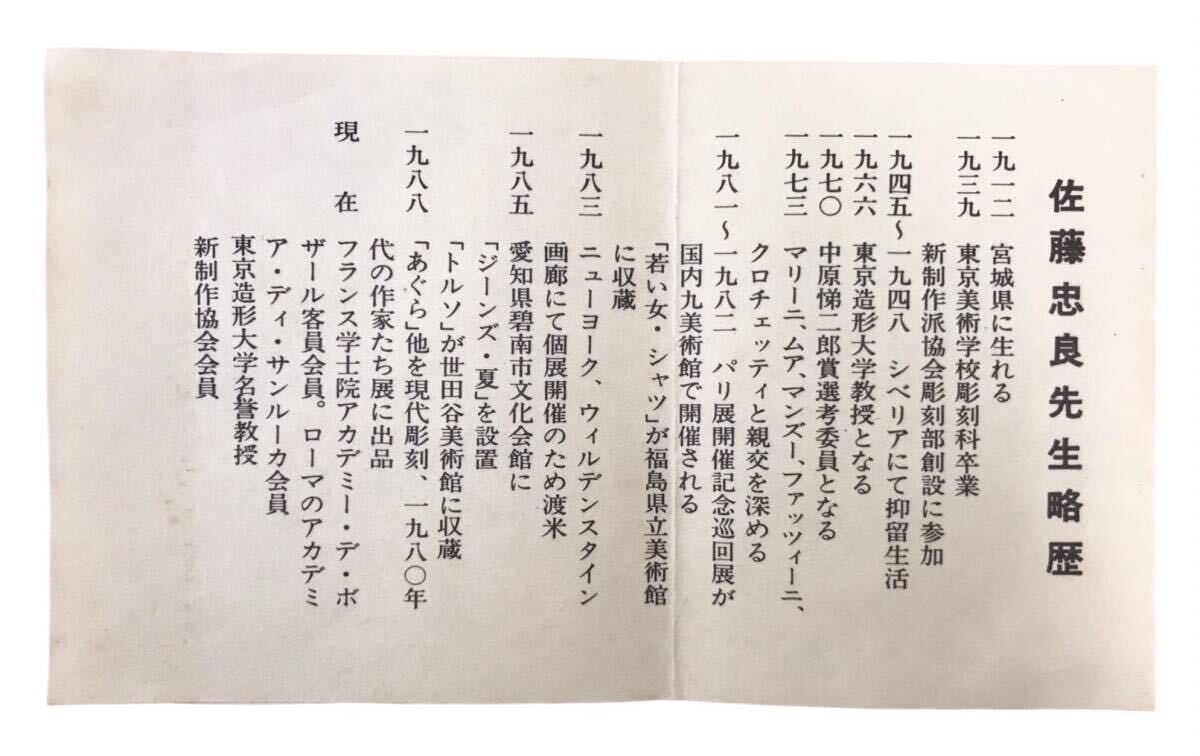 佐藤忠良先生略歴
一九一二 宮城県に生れる
一九三九 東京美術学校彫刻科卒業
新制作派協会彫刻部創設に参加
一九四五～一九四八 シベリアにて抑留生活
一九六六 東京造形大学教授となる
一九七〇 中原悌二郎賞選考委員となる
一九七三 マリーニ、ムア、マンズー、ファッツィーニ、
クロチェッティと親交を深める
一九八一～一九八二 パリ展開催記念巡回展が
国内九美術館で開催される
「若い女・シャツ」が福島県立美術館
に収蔵
一九八三 ニューヨーク、ウィルデンスタイン
画廊にて個展開催のため渡米
一九八五 愛知県碧南市文化会館に
「ジーンズ・夏」を設置
「トルソ」が世田谷美術館に収蔵
一九八八 「あぐら」他を現代彫刻、一九八〇年
代の作家たち展に出品
現在 フランス学士院アカデミー・デ・ボ
ザール客員会員。ローマのアカデミ
ア・ディ・サンルーカ会員
東京造形大学名誉教授
新制作協会会員